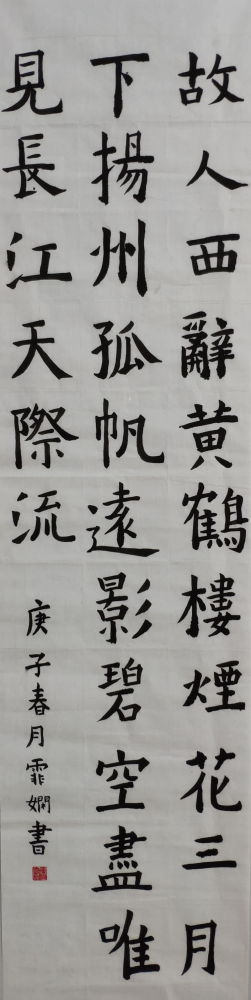 故人西辭黄鶴樓煙花三月
下揚州孤帆遠影碧空盡唯
見長江天際流
庚子春月霏嫻書